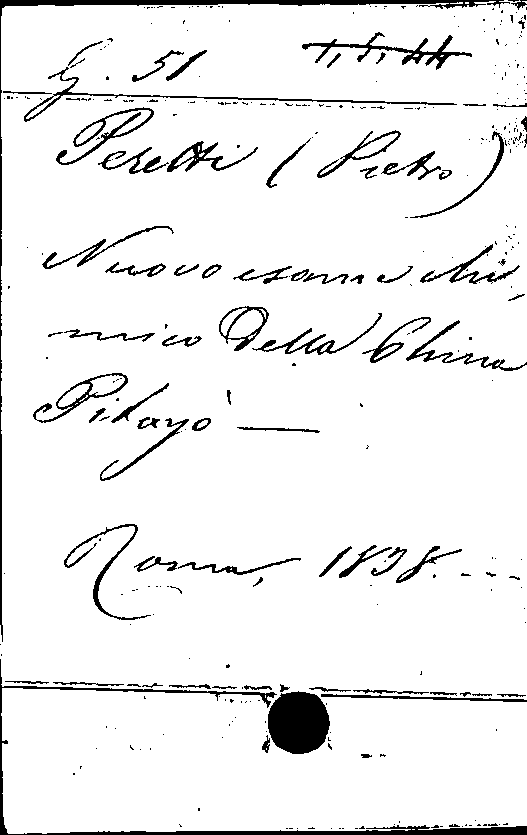 G. 51 1, 5, 44
Peretti (Pietro)
Nuovo esame chi,
mico Della China
Pitayò —
Roma, 1838. ...